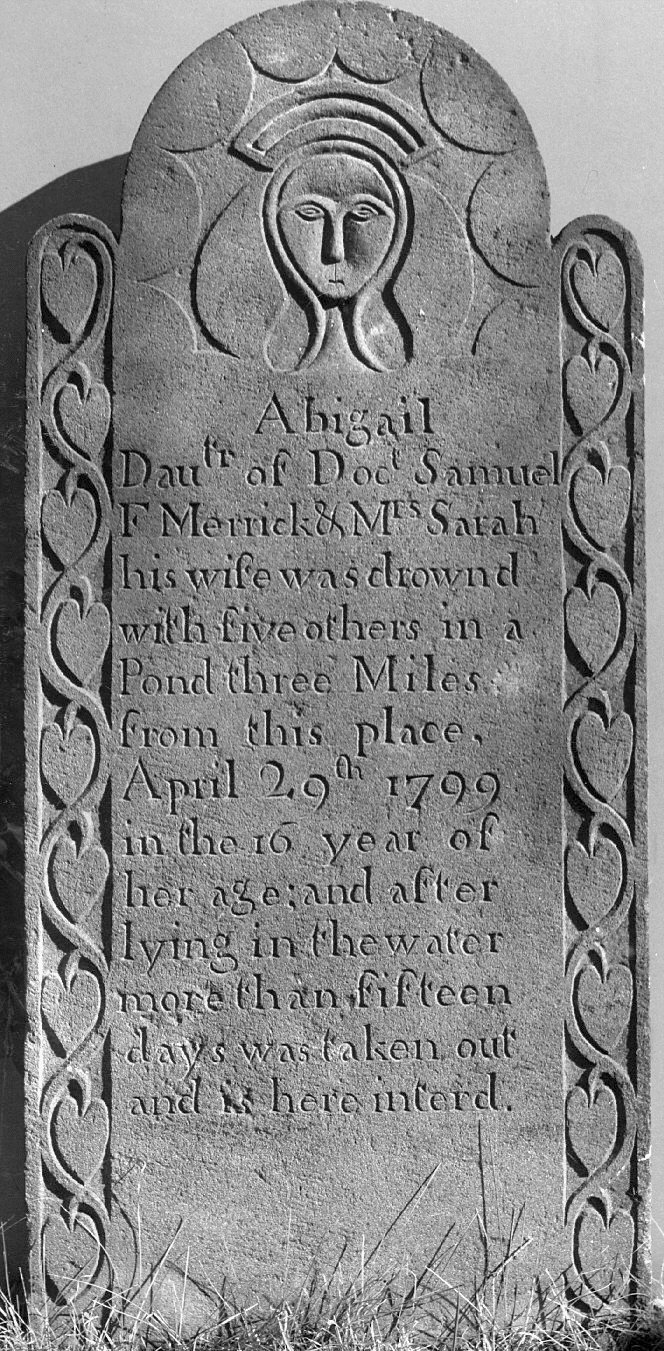 Abigail
Dautr of Doct Samuel
F Merrick & Mrs Sarah
his wife was drownd
with five others in a
Pond three Miles
from this place,
April 29th 1799
in the 16 year of
her age; and after
lying in the water
more than fifteen
days was taken out
and is here interd.